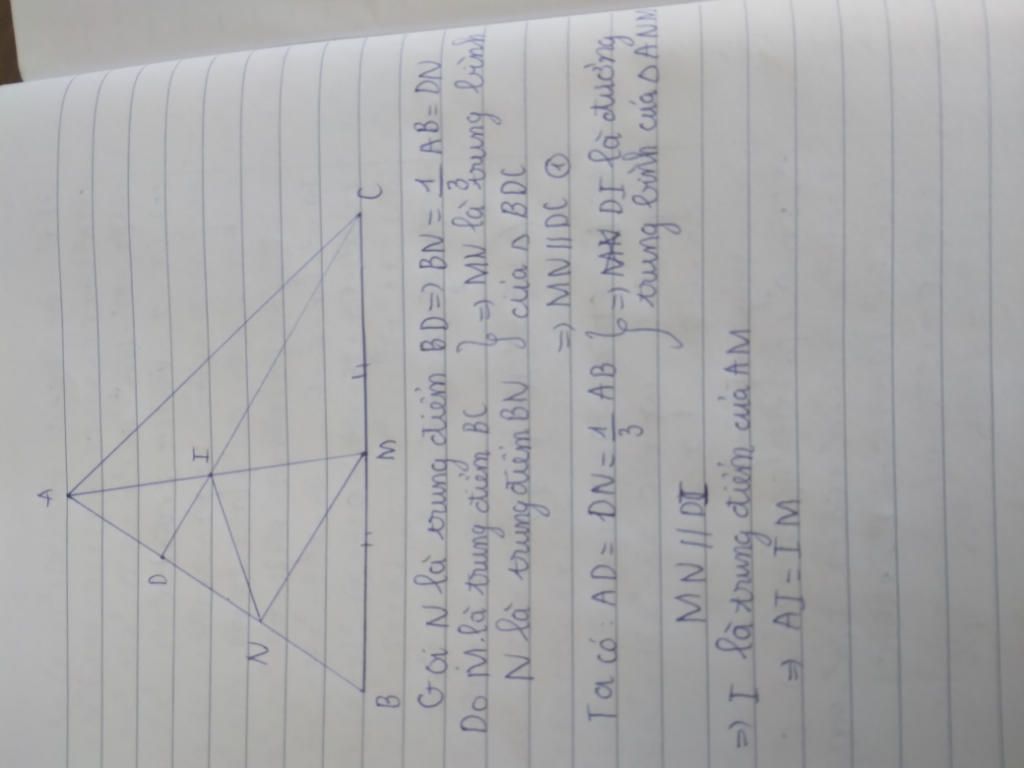 A
D
I
N
B
M
C
Gọi N là trung điểm BD => BN = 1/3 AB = DN
Do M là trung điểm BC } => MN là trung bình
N là trung điểm BN } của Δ BDC
=> MN // DC ①
Ta có: AD = DN = 1/3 AB } => DI là đường
MN // DI } trung bình của Δ ANM
=> I là trung điểm của AM
=> AI = IM